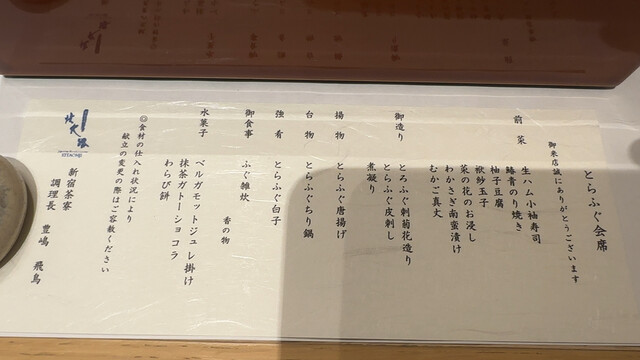 とらふぐ会席
御来店誠にありがとうございます
前菜
生ハム小袖寿司
鱶青のり焼き
柚子豆腐
袱紗玉子
菜の花のお浸し
わかさぎ南蛮漬け
むかご真丈
御造り
とらふぐ刺菊花造り
とらふぐ皮刺し
煮凝り
揚物
とらふぐ唐揚げ
台物
とらふぐちり鍋
強肴
とらふぐ白子
御食事
ふぐ雑炊
香の物
水菓子
ベルガモットジュレ掛け
抹茶ガトーショコラ
わらび餅
◎食材の仕入れ状況により
献立の変更の際はご容赦ください
新宿茶寮
調理長 豊嶋 飛鳥
北大路